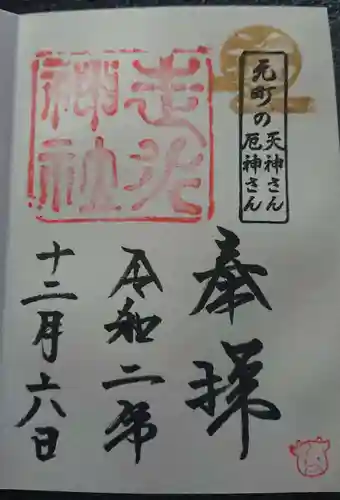 元町の
天神さん
厄神さん
走水
神社
奉拝
令和二年
十二月十八日